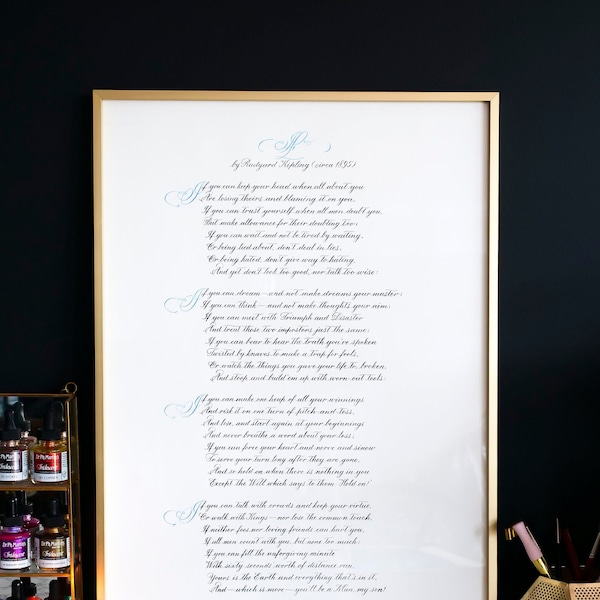 If
by Rudyard Kipling (circa 1895)
If you can keep your head when all about you
Are losing theirs and blaming it on you,
If you can trust yourself when all men doubt you,
But make allowance for their doubting too;
If you can wait and not be tired by waiting,
Or being lied about, don't deal in lies,
Or being hated, don't give way to hating,
And yet don't look too good, nor talk too wise:
If you can dream—and not make dreams your master;
If you can think—and not make thoughts your aim;
If you can meet with Triumph and Disaster
And treat those two impostors just the same;
If you can bear to hear the truth you've spoken
Twisted by knaves to make a trap for fools,
Or watch the things you gave your life to, broken,
And stoop and build 'em up with worn-out tools:
If you can make one heap of all your winnings
And risk it on one turn of pitch-and-toss,
And lose, and start again at your beginnings
And never breathe a word about your loss;
If you can force your heart and nerve and sinew
To serve your turn long after they are gone,
And so hold on when there is nothing in you
Except the Will which says to them: 'Hold on!'
If you can talk with crowds and keep your virtue,
Or walk with Kings—nor lose the common touch,
If neither foes nor loving friends can hurt you,
If all men count with you, but none too much;
If you can fill the unforgiving minute
With sixty seconds' worth of distance run,
Yours is the Earth and everything that's in it,
And—which is more—you'll be a Man, my son!